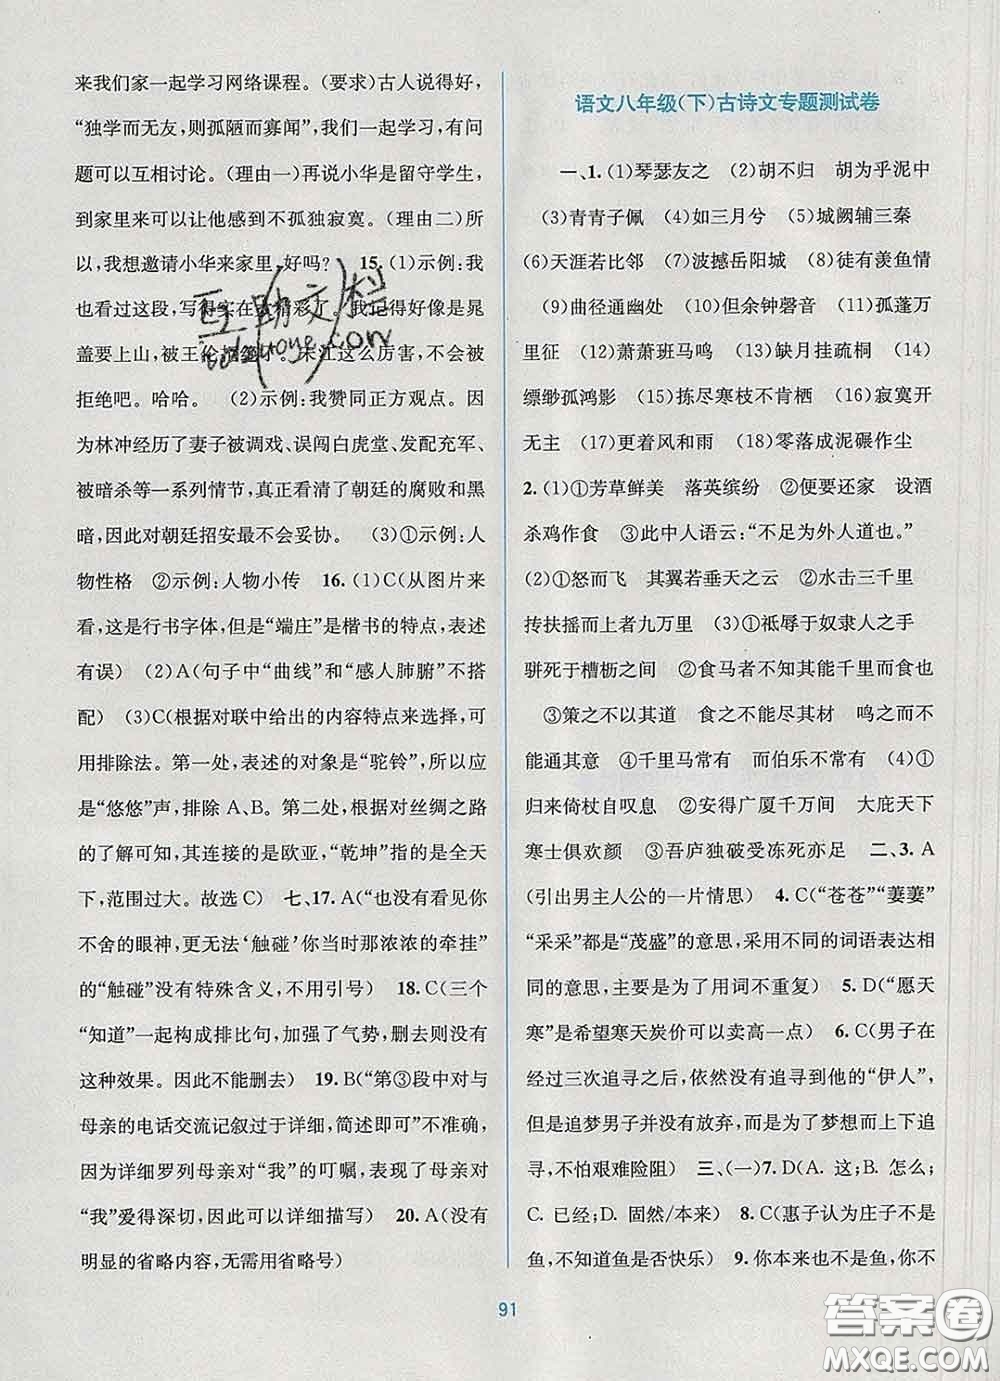 来我们家一起学习网络课程。(要求)古人说得好，
“独学而无友，则孤陋而寡闻”，我们一起学习，有问
题可以互相讨论。(理由一)再说小华是留守学生，
到家里来可以让他感到不孤独寂寞。(理由二)所
以，我想邀请小华来家里，好吗？ 15.(1)示例：我
也看过这段，写得实在太精彩了。我记得好像是晁
盖要上山，被王伦拒绝了。宋江这么厉害，不会被
拒绝吧。哈哈。 (2)示例：我赞同正方观点。因
为林冲经历了妻子被调戏、误闯白虎堂、发配充军、
被暗杀等一系列情节，真正看清了朝廷的腐败和黑
暗，因此对朝廷招安最不会妥协。 (3)①示例：人
物性格 ②示例：人物小传 16.(1)C(从图片来
看，这是行书字体，但是“端庄”是楷书的特点，表述
有误) (2)A(句子中“曲线”和“感人肺腑”不搭
配) (3)C(根据对联中给出的内容特点来选择，可
用排除法。第一处，表述的对象是“驼铃”，所以应
是“悠悠”声，排除A、B。第二处，根据对丝绸之路
的了解可知，其连接的是欧亚，“乾坤”指的是全天
下，范围过大。故选C) 七、17.A(“也没有看见你
不舍的眼神，更无法‘触碰’你当时那浓浓的牵挂”
的“触碰”没有特殊含义，不用引号) 18.C(三个
“知道”一起构成排比句，加强了气势，删去就没有
这种效果。因此不能删去) 19.B(“第③段中对与
母亲的电话交流记叙过于详细，简略一些”不正确，
因为详细罗列母亲对“我”的叮嘱，表现了母亲对
“我”爱得深切，因此可以详细描写) 20.A(没有
明显的省略内容，无需用省略号)
语文八年级(下)古诗文专题测试卷
一、1.(1)琴瑟友之 (2)胡不归 胡为乎泥中
(3)青青子佩 (4)如三月兮 (5)城阙辅三秦
(6)天涯若比邻 (7)波撼岳阳城 (8)徒有羡鱼情
(9)曲径通幽处 (10)但余钟磬音 (11)孤蓬万
里征 (12)萧萧班马鸣 (13)缺月挂疏桐 (14)
缥缈孤鸿影 (15)拣尽寒枝不肯栖 (16)寂寞开
无主 (17)更着风和雨 (18)零落成泥碾作尘
2.(1)①芳草鲜美 落英缤纷 ②便要还家 设酒
杀鸡作食 ③此中人语云：“不足为外人道也。”
(2)①怒而飞 其翼若垂天之云 ②水击三千里
抟扶摇而上者九万里 (3)①祗辱于奴隶人之手
骈死于槽枥之间 ②食马者不知其能千里而食也
③策之不以其道 食之不能尽其材 鸣之而不
能通其意 ④千里马常有 而伯乐不常有 (4)①
归来倚杖自叹息 ②安得广厦千万间 大庇天下
寒士俱欢颜 ③吾庐独破受冻死亦足 二、3.A
(引出男主人公的一片情思) 4.C(“苍苍”“萋萋”
“采采”都是“茂盛”的意思，采用不同的词语表达相
同的意思，主要是为了用词不重复) 5.D(“愿天
寒”是希望寒天炭价可以卖高一点) 6.C(男子在
经过三次追寻之后，依然没有追寻到他的“伊人”，
但是追梦男子并没有放弃，而是为了梦想而上下追
寻，不怕艰难险阻) 三、(一)7.D(A.这；B.怎么；
C.已经；D.固然/本来) 8.C(惠子认为庄子不是
鱼，不知道鱼是否快乐) 9.你本来也不是鱼，你不
91
答案圈
MXQE.COM